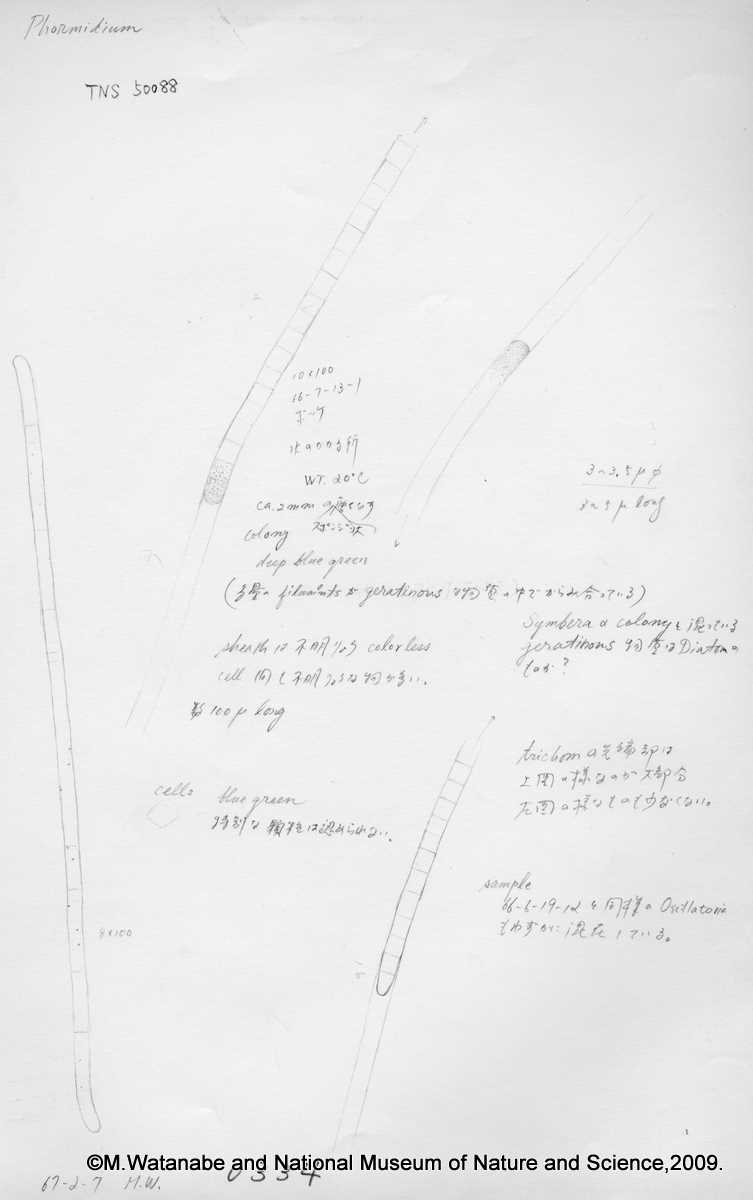 Phormidium
TNS 50088
10×100
66-7-13-1
WT. 20°C
ca. 2mm
colony スポンジ状
deep blue green
(多量の filaments が geratinous な物質の中でからみ合っている)
3~3.5 μ φ
3~5 μ long
sheath は不明りょう colorless
cell 同じ不明りょうな物が多い。
100 μ long
Symbera の colony も混っている
geratinous な物質は Diatom の
ものか?
cells
blue green
特別な顆粒は認められない。
trichom の先端部は
上図の様なのが大部分
左図の様なものも少なくない。
sample
66-6-19-12 と同様の Oscillatoria
もわずかに混在している。
8×100
5/
©M.Watanabe and National Museum of Nature and Science,2009.
0334
67-2-7 M.W.